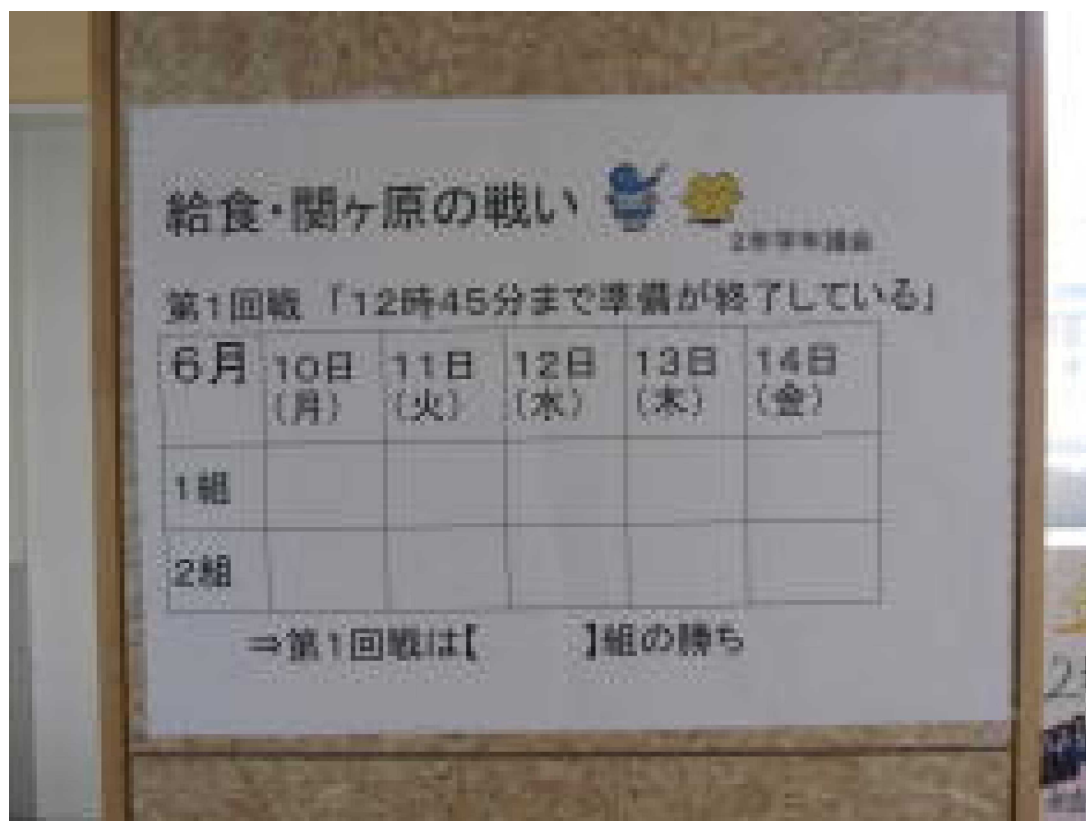 給食・関ヶ原の戦い
2年学年議会
第1回戦 「12時45分まで準備が終了している」
6月 10日(月) 11日(火) 12日(水) 13日(木) 14日(金)
1組
2組
⇒第1回戦は【　　　】組の勝ち